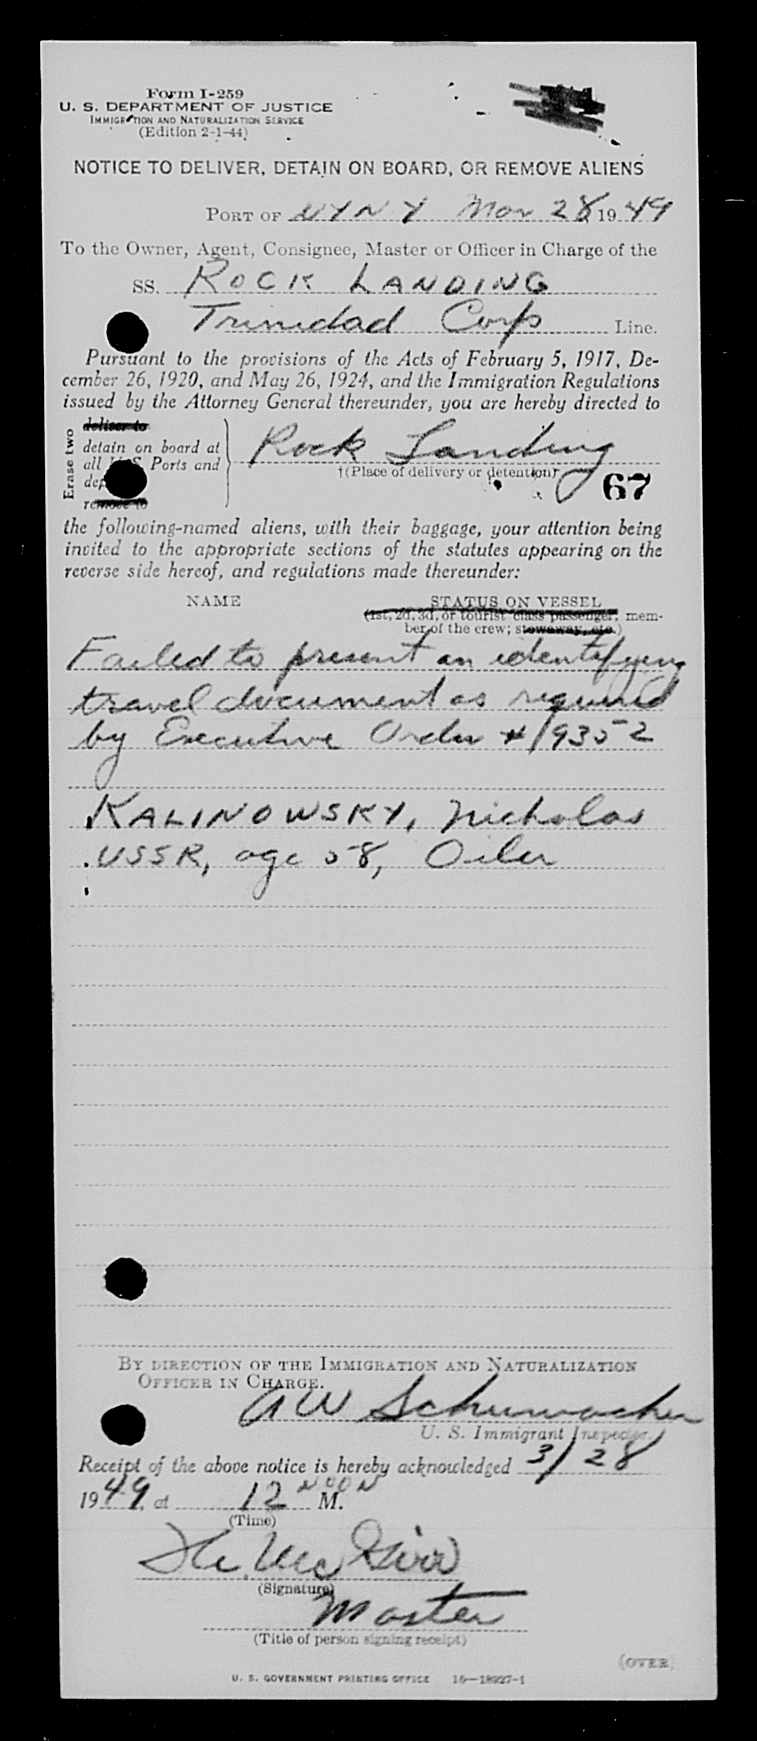 Form I-259
U. S. DEPARTMENT OF JUSTICE
IMMIGRATION AND NATURALIZATION SERVICE
(Edition 2-1-44)
NOTICE TO DELIVER, DETAIN ON BOARD, OR REMOVE ALIENS
PORT OF NYNY Mar 28 1949
To the Owner, Agent, Consignee, Master or Officer in Charge of the
SS. ROCK LANDING
Trinidad Corp Line.
Pursuant to the provisions of the Acts of February 5, 1917, De-
cember 26, 1920, and May 26, 1924, and the Immigration Regulations
issued by the Attorney General thereunder, you are hereby directed to
Erase two
deliver to
detain on board at
all U S Ports and
dep
remove to
Rock Landing
†(Place of delivery or detention)
67
the following-named aliens, with their baggage, your attention being
invited to the appropriate sections of the statutes appearing on the
reverse side hereof, and regulations made thereunder:
NAME STATUS ON VESSEL
(1st, 2d, 3d, or tourist class passenger, mem-
ber of the crew; stowaway, etc.)
Failed to present an identifying
travel document as required
by Executive Order #19352
KALINOWSKY, Nicholas
USSR, age 58, Oiler
BY DIRECTION OF THE IMMIGRATION AND NATURALIZATION
OFFICER IN CHARGE.
AW Schumacher
U. S. Immigrant Inspector.
Receipt of the above notice is hereby acknowledged 3/28
1949, at 12 NOON M.
(Time)
(Signature)
Master
(Title of person signing receipt)
(OVER)
U. S. GOVERNMENT PRINTING OFFICE 16—18927-1